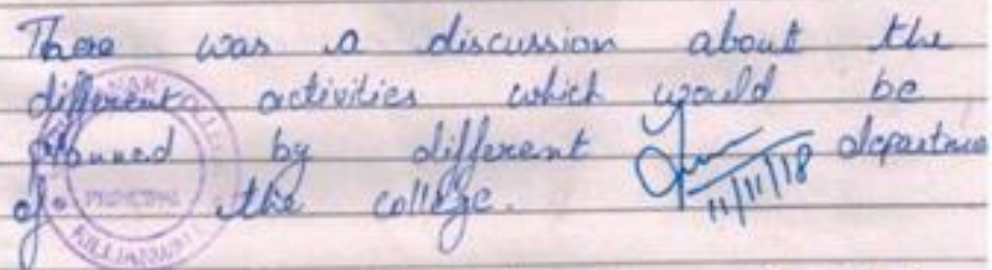 There was a discussion about the
different activities which would be
planned by different departme
of the college.
11/11/18
PRINCIPAL
KILLIANWALI